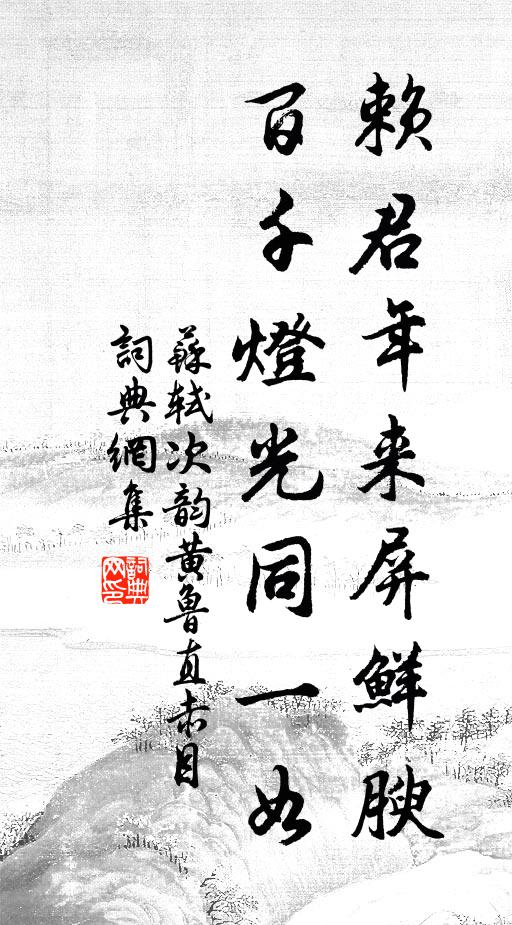 赖君年来屏鮮腴
百千燈光同一如
蘇軾次韵黄魯直赤目
詞典網集
詞典網印